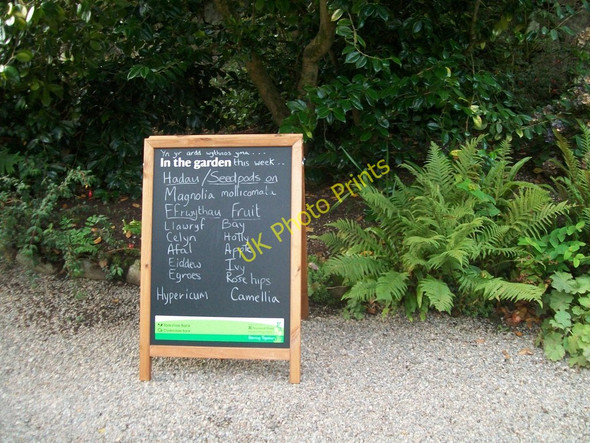 Yn yr ardd wythnos yma...
In the garden this week...
Hadau/Seedpods on
Magnolia mollicomata
Ffrwythau Fruit
Llawryf Bay
Celyn Holly
Afal Apple
Eiddew Ivy
Egroes Rose hips
Hypericum Camellia
UK Photo Prints